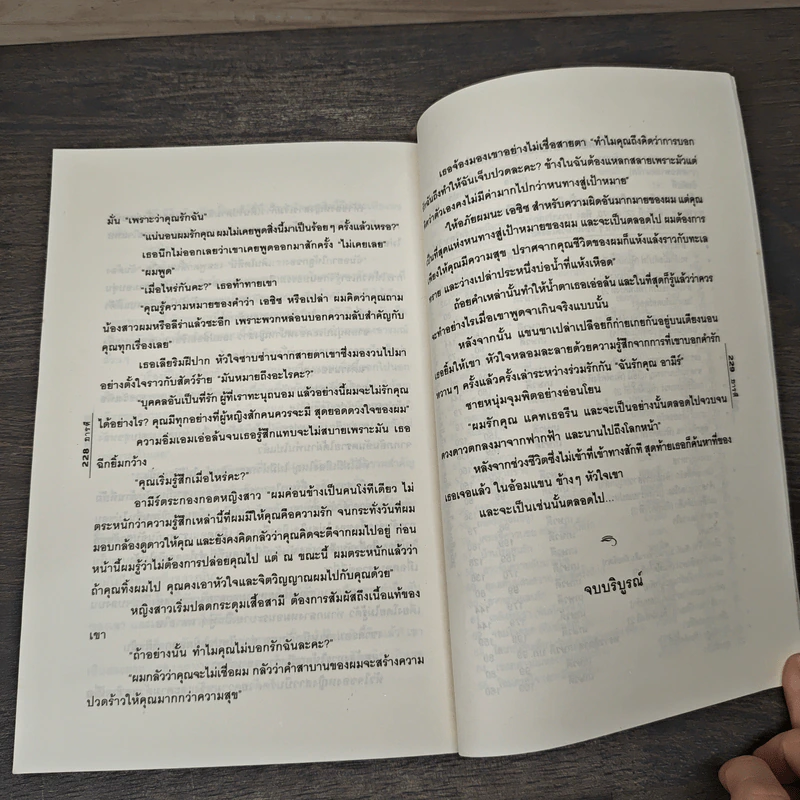 มั่น "เพราะว่าคุณรักฉัน"
"แน่นอนผมรักคุณ ผมไม่เคยพูดสิ่งนี้มาเป็นร้อยๆ ครั้งแล้วเหรอ?"
เธอนึกไม่ออกเลยว่าเขาเคยพูดออกมาสักครั้ง "ไม่เคยเลย"
"ผมพูด"
"เมื่อไหร่กันคะ?" เธอท้าทายเขา
"คุณรู้ความหมายของคำว่า เอซิซ หรือเปล่า ผมคิดว่าคุณถาม
น้องสาวผมหรือลีร่าแล้วซะอีก เพราะพวกหล่อนบอกความลับสำคัญกับ
คุณทุกเรื่องเลย"
เธอเลียริมฝีปาก หัวใจซาบซ่านจากสายตาเขาซึ่งมองวนไปมา
อย่างตั้งใจราวกับสัตว์ร้าย "มันหมายถึงอะไรคะ?"
"บุคคลอันเป็นที่รัก ผู้ที่เราทะนุถนอม แล้วอย่างนี้ผมจะไม่รักคุณ
ได้อย่างไร? คุณมีทุกอย่างที่ผู้หญิงสักคนควรจะมี สุดยอดดวงใจของผม"
ความอิ่มเอมเอ่อล้นจนเธอรู้สึกแทบจะไม่สบายเพราะมัน เธอ
ฉีกยิ้มกว้าง
"คุณเริ่มรู้สึกเมื่อไหร่คะ?"
อามีร์ตระกองกอดหญิงสาว "ผมค่อนข้างเป็นคนโง่ทีเดียว ไม่
ตระหนักว่าความรู้สึกเหล่านี้ที่ผมมีให้คุณคือความรัก จนกระทั่งวันที่ผม
มอบกล้องดูดาวให้คุณ และยังคงคิดกลัวว่าคุณคิดจะตีจากผมไปอยู่ ก่อน
หน้านี้ผมรู้ว่าไม่ต้องการปล่อยคุณไป แต่ ณ ขณะนี้ ผมตระหนักแล้วว่า
ถ้าคุณทิ้งผมไป คุณคงเอาหัวใจและจิตวิญญาณผมไปกับคุณด้วย"
หญิงสาวเริ่มปลดกระดุมเสื้อสามี ต้องการสัมผัสถึงเนื้อแท้ของ
เขา
"ถ้าอย่างนั้น ทำไมคุณไม่บอกรักฉันละคะ?"
"ผมกลัวว่าคุณจะไม่เชื่อผม กลัวว่าคำสาบานของผมจะสร้างความ
ปวดร้าวให้คุณมากกว่าความสุข"
228 ธารตี
เธอจ้องมองเขาอย่างไม่เชื่อสายตา "ทำไมคุณถึงคิดว่าการบอก
ฉันถึงทำให้ฉันเจ็บปวดละคะ? ข้างในฉันต้องแหลกสลายเพราะมัวแต่
ว่าตัวเองคงไม่มีค่ามากไปกว่าหนทางสู่เป้าหมาย"
"ให้อภัยผมนะ เอซิซ สำหรับความผิดอันมากมายของผม แต่คุณ
เป็นที่สุดแห่งหนทางสู่เป้าหมายของผม และจะเป็นตลอดไป ผมต้องการ
เพียงให้คุณมีความสุข ปราศจากคุณชีวิตของผมก็แห้งแล้งราวกับทะเล
ทราย และว่างเปล่าประหนึ่งบ่อน้ำที่แห้งเหือด"
ถ้อยคำเหล่านั้นทำให้น้ำตาเธอเอ่อล้น และในที่สุดก็รู้แล้วว่าควร
จะทำอย่างไรเมื่อเขาพูดจาเกินจริงแบบนั้น
หลังจากนั้น แขนขาเปล่าเปลือยก็ก่ายเกยกันอยู่บนเตียงนอน
เธอยิ้มให้เขา หัวใจหลอมละลายด้วยความรู้สึกจากการที่เขาบอกคำรัก
หวานๆ ครั้งแล้วครั้งเล่าระหว่างร่วมรักกัน "ฉันรักคุณ อามีร์"
ชายหนุ่มจุมพิตอย่างอ่อนโยน
"ผมรักคุณ แคทเธอรีน และจะเป็นอย่างนั้นตลอดไปจวบจน
ดวงดาวตกลงมาจากฟากฟ้า และนานไปถึงโลกหน้า"
หลังจากช่วงชีวิตซึ่งไม่เข้าที่เข้าทางสักที สุดท้ายเธอก็ค้นหาที่ของ
เธอเจอแล้ว ในอ้อมแขน ข้างๆ หัวใจเขา
และจะเป็นเช่นนั้นตลอดไป...
จบบริบูรณ์
229 ธารตี